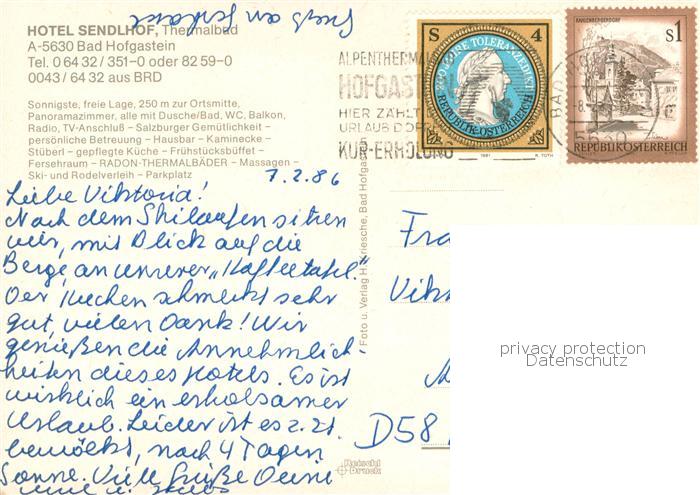 Gruß an
HOTEL SENDLHOF, Thermalbad
A-5630 Bad Hofgastein
Tel. 0 64 32 / 351-0 oder 82 59-0
0043 / 64 32 aus BRD
Sonnigste, freie Lage, 250 m zur Ortsmitte,
Panoramazimmer, alle mit Dusche/Bad, WC, Balkon,
Radio, TV-Anschluß – Salzburger Gemütlichkeit –
persönliche Betreuung – Hausbar – Kaminecke –
Stüberl – gepflegte Küche – Frühstücksbüffet –
Fernsehraum – RADON-THERMALBÄDER – Massagen –
Ski- und Rodelverleih – Parkplatz
7.2.86
Liebe Viktoria!
Nach dem Skilaufen sitzen
wir, mit Blick auf die
Berge, an unserer „Kaffeetafel."
Der Kuchen schmeckt sehr
gut, vielen Dank! Wir
genießen die Annehmlich-
keiten dieses Hotels. Es ist
wirklich ein erholsamer
Urlaub. Leider ist es z. Zt.
bewölkt, nach 4 Tagen
Sonne. Viele Grüße Deine
Foto u. Verlag H. Kriesche, Bad Hofga
ALPENTHERMAL
HOFGAST
HIER ZÄHLT
URLAUB DOPP
KUR-ERHOLUNG
S 4
200 JAHRE TOLERANZEDIKT
REPUBLIK ÖSTERREICH
1981
R. TOTH
KAHLENBERGERDORF
S 1
REPUBLIK ÖSTERREICH
BAD HO
Fra
Vikt
D58
Datenschutz
privacy protection